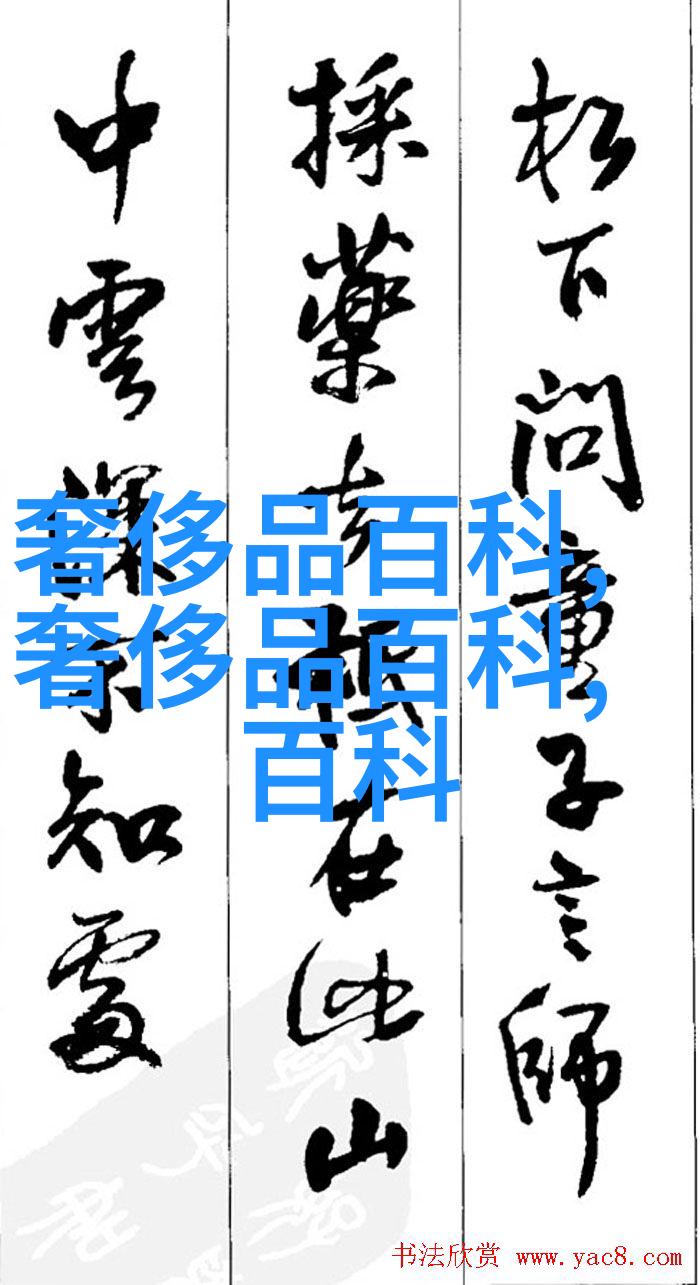 松下问童子言師
採藥去祗在此山
中雲深不知處
奢侈品百科,
奢侈品百科,
百科
书法欣赏 www.yac8.com